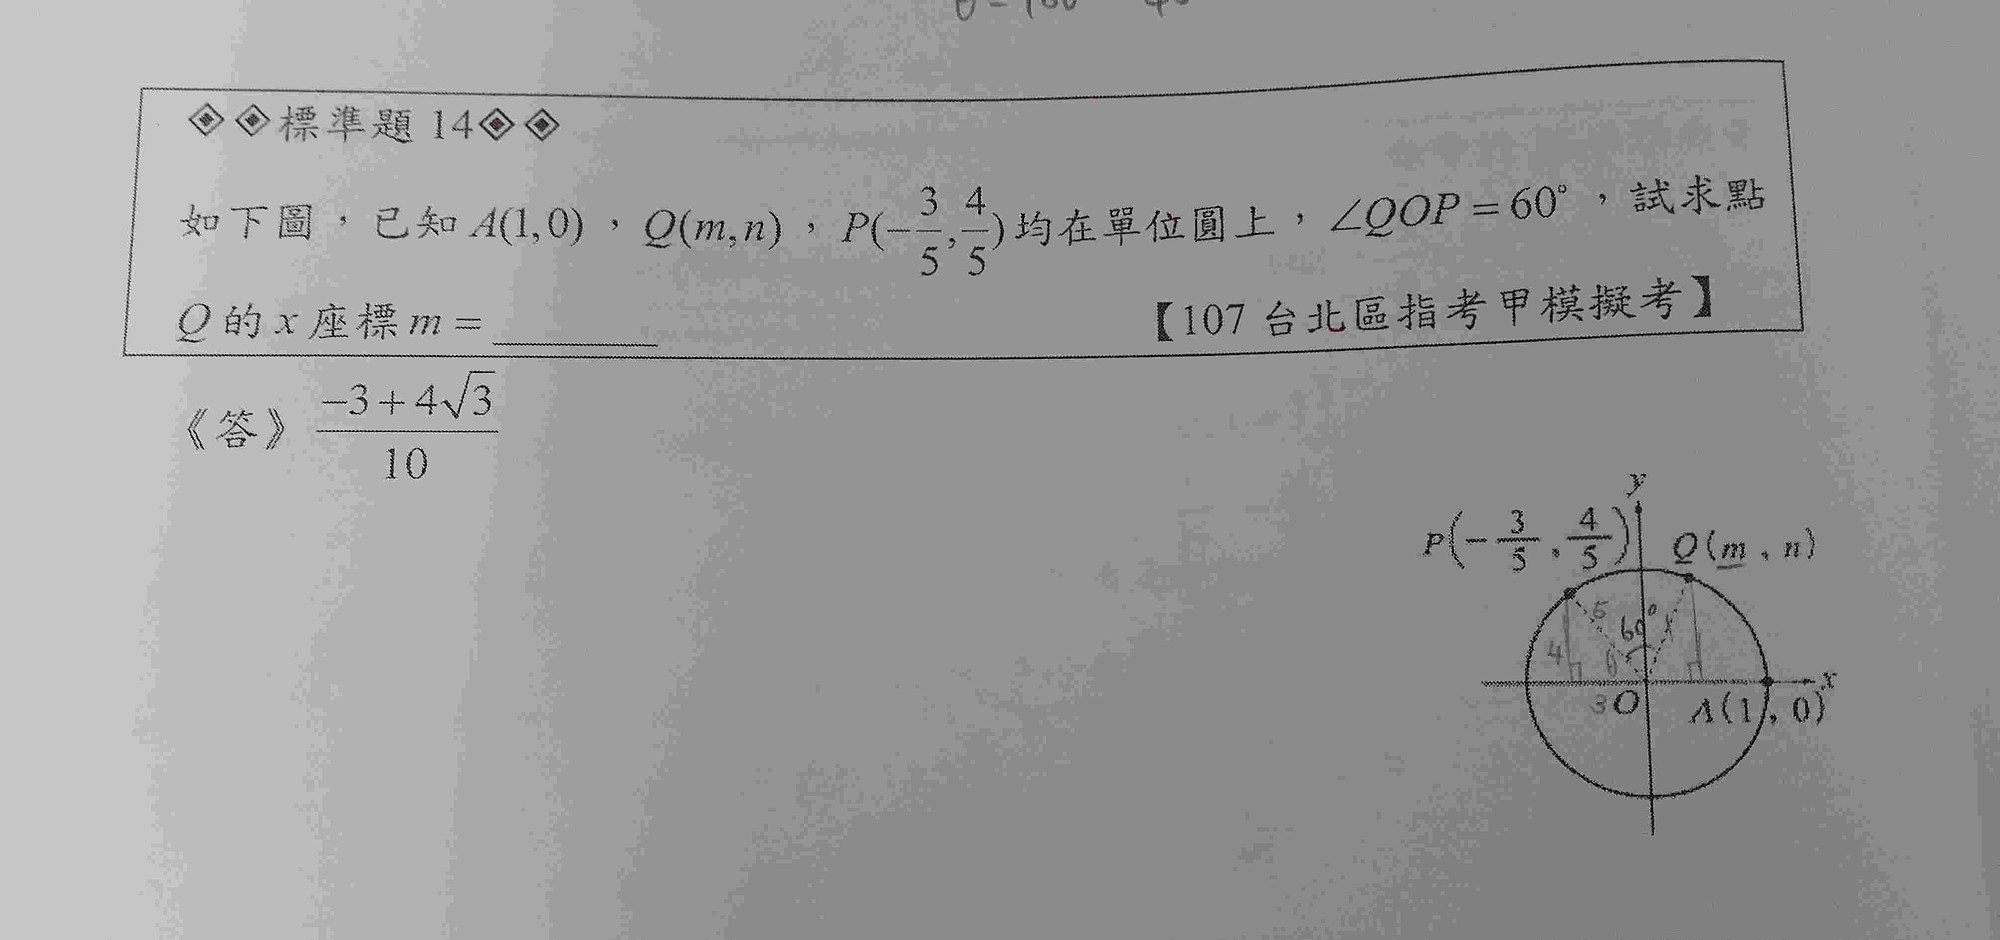 ◈◈標準題 14◈◈
如下圖，已知 A(1,0)，Q(m,n)，P(-3/5,4/5)均在單位圓上，∠QOP=60°，試求點
Q 的 x 座標 m = ______ 【107 台北區指考甲模擬考】
《答》 (-3+4√3)/10
y
P(-3/5, 4/5) Q(m, n)
5 60° 1
4 θ
x
3 O A(1, 0)